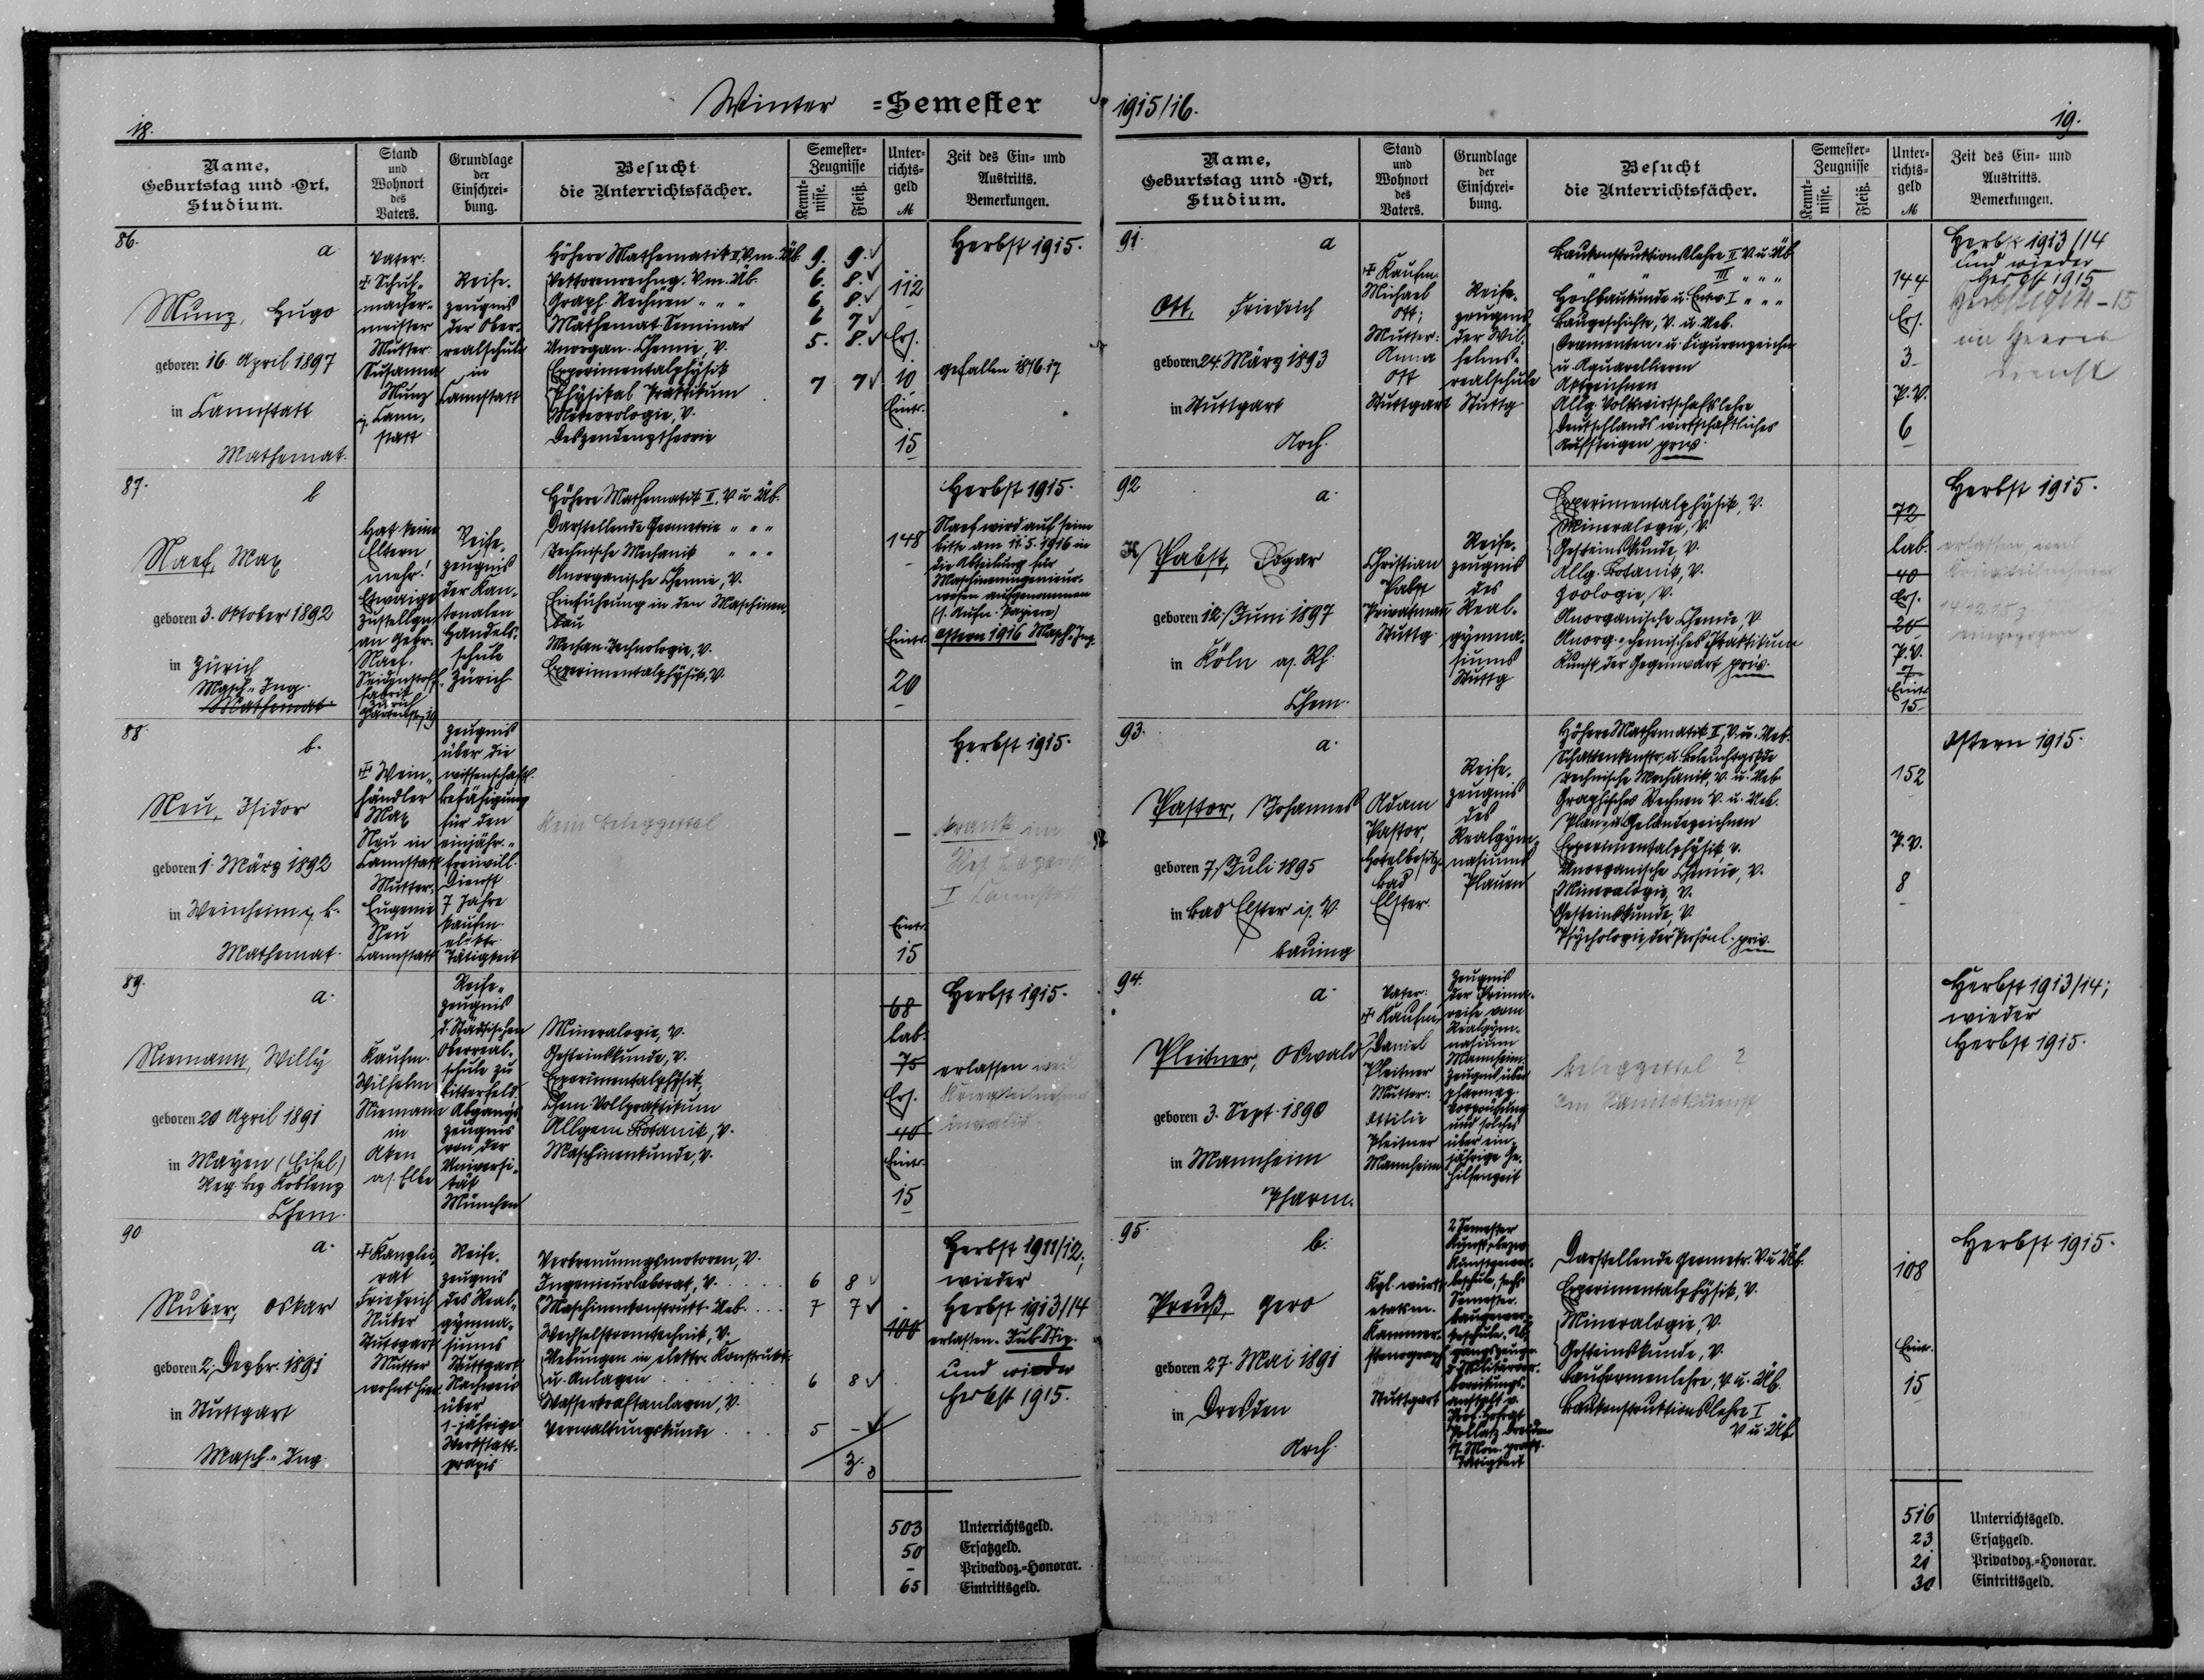 18.
Winter =Semester
Name,
Geburtstag und =Ort,
Studium.
Stand
und
Wohnort
des
Vaters.
Grundlage
der
Einschrei-
bung.
Besucht
die Unterrichtsfächer.
Semester-
Zeugnisse
Kennt-
nisse.
Fleiß.
Unter-
richts-
geld
M
Zeit des Ein- und
Austritts.
Bemerkungen.
86.
a
Munz, Hugo
geboren 16. April 1897
in Cannstatt
Mathemat.
Vater:
† Schuh-
macher-
meister
Mutter:
Susanna
Munz
i. Cann-
statt
Reife-
zeugnis
der Ober-
realschule
in
Cannstatt
Höhere Mathematik II, V. m. Üb. 9. 9.
Vektorenrechng. V. m. Üb. 6. 8.
Graph. Rechnen " " " 6. 8.
Mathemat. Seminar 6 7
Anorgan. Chemie, V. 5. 8.
Experimentalphysik
Physikal. Praktikum 7 7
Meteorologie, V.
Deszendenztheorie
112
Ers.
10
Eintr.
15
Herbst 1915.
gefallen 1916.17
87.
b
Naef, Max
geboren 3. Oktober 1892
in Zürich
Masch.-Ing.
Mathemat.
Hat keine
Eltern
mehr!
Etwaige
Zustellgn
an Gebr.
Naef,
Seidenstoff-
fabrik
Zürich
Reife-
zeugnis
der Kan-
tonalen
Handels-
schule
Zürich
Höhere Mathematik II, V. u. Üb.
Darstellende Geometrie " " "
Technische Mechanik " " "
Anorganische Chemie, V.
Einführung in den Maschinen-
bau
Mechan. Technologie, V.
Experimentalphysik, V.
148
Eintr.
20
Herbst 1915.
Naef wird auf seine
Bitte am 11.5.1916 in
die Abteilung für
Maschineningenieur-
wesen aufgenommen
(s. Aufn. Papiere)
Ostern 1916 Masch.-Ing.
88.
b.
Neu, Isidor
geboren 1. März 1892
in Weinheim i. B.
Mathemat.
† Wein-
händler
Max
Neu in
Cannstatt
Mutter:
Eugenie
Neu
Cannstatt
Zeugnis
über die
wissenschaftl.
Befähigung
für den
einjähr.-
freiwill.
Dienst
7 Jahre
kaufm.
elektr.
Tätigkeit
Kein Belegzettel
—
Eintr.
15
Herbst 1915.
krank im
Res. Lazarett
I Cannstatt
89.
a.
Niemann, Willy
geboren 20 April 1891
in Mayen (Eifel)
Reg. Bez. Koblenz
Chem.
Kaufm.
Wilhelm
Niemann
in
Aken
a/. Elbe
Reife-
zeugnis
d. Städtischen
Oberreal-
schule zu
Bitterfeld.
Abgangs-
zeugnis
von der
Universi-
tät
München
Mineralogie, V.
Gesteinskunde, V.
Experimentalphysik,
Chem. Vollpraktikum
Allgem. Botanik, V.
Maschinenkunde, V.
68
Lab.
75
Ers.
40
Eintr.
15
Herbst 1915.
erlassen weil
Kriegsteilnehmer
invalid.
90.
a.
Nuber, Oskar
geboren 2. Dezbr. 1891
in Stuttgart
Masch.-Ing.
† Kanzlei-
rat
Friedrich
Nuber
Stuttgart
Mutter
wohnt hier
Reife-
zeugnis
des Real-
gymna-
siums
Stuttgart
Nachweis
über
1-jährige
Werkstatt-
praxis
Verbrennungsmotoren, V.
Ingenieurlaborat., V. 6 8
Maschinenkonstrukt. Ueb. 7 7
Wechselstromtechnik, V.
Uebungen in elektr. Konstrukt.
u. Anlagen 6 8
Wasserkraftanlagen, V.
Verwaltungskunde 5 -
100
Herbst 1911/12;
wieder
Herbst 1913/14
erlassen. Jub. Stip.
und wieder
Herbst 1915.
503 Unterrichtsgeld.
50 Ersatzgeld.
- Privatdoz.-Honorar.
65 Eintrittsgeld.
1915/16.
19.
Name,
Geburtstag und =Ort,
Studium.
Stand
und
Wohnort
des
Vaters.
Grundlage
der
Einschrei-
bung.
Besucht
die Unterrichtsfächer.
Semester-
Zeugnisse
Kennt-
nisse.
Fleiß.
Unter-
richts-
geld
M
Zeit des Ein- und
Austritts.
Bemerkungen.
91.
a
Ott, Friedrich
geboren 24. März 1893
in Stuttgart
Arch.
† Kaufm.
Michael
Ott;
Mutter:
Anna
Ott
Stuttgart
Reife-
zeugnis
der Wil-
helms-
realschule
Stuttg.
Baukonstruktionslehre II V. u. Üb.
" III " " "
Hochbaukunde u. Entw. I " " "
Baugeschichte, V. u. Ueb.
Ornamenten- u. Figurenzeichn
u. Aquarellieren
Aktzeichnen
Allg. Volkswirtschaftslehre
Deutschlands wirtschaftliches
Aufsteigen priv.
144
Ers.
3
P.V.
6
Herbst 1913/14
und wieder
Herbst 1915
92
a.
Pabst, Edgar
geboren 12. Juni 1897
in Köln a/. Rh.
Chem.
Christian
Pabst
Privatmann
Stuttg.
Reife-
zeugnis
des
Real-
gymna-
siums
Stuttg
Experimentalphysik, V.
Mineralogie, V.
Gesteinskunde, V.
Allg. Botanik, V.
Zoologie, V.
Anorganische Chemie, V
Anorg.-chemisches Praktikum
Kunst der Gegenwart priv.
72
Lab.
40
Ers.
20
P.V.
7
Eintr.
15
Herbst 1915.
erlassen, weil
Kriegsteilnehmer
eingezogen
93.
a.
Pastor, Johannes
geboren 7. Juli 1895
in Bad Elster i/. V.
Bauing
Adam
Pastor,
Hotelbesitz.
Bad
Elster.
Reife-
zeugnis
des
Realgym-
nasiums
Plauen
Höhere Mathematik II, V. u. Ueb.
Schattenkonstr. u. Beleuchtgskde
Technische Mechanik, V. u. Ueb.
Graphisches Rechnen V. u. Ueb.
Plan- u. Geländezeichnen
Experimentalphysik V.
Anorganische Chemie, V.
Mineralogie, V.
Gesteinskunde, V
Psychologie der Persönl. priv.
152
P.V.
8
Ostern 1915.
94.
a.
Pleitner, Oswald
geboren 3. Sept. 1890
in Mannheim
Pharm.
Vater:
† Kaufm.
Daniel
Pleitner
Mutter:
Ottilie
Pleitner
Mannheim
Zeugnis
der Prima-
reife vom
Realgym-
nasium
Mannheim.
Zeugnis über
pharmaz.
Vorprüfung
und solches
über ein-
jährige Ge-
hilfenzeit
Belegzettel ?
Im Sanitätsdienst
Herbst 1913/14;
wieder
Herbst 1915.
95.
b.
Preuß, Gero
geboren 27. Mai 1891
in Dresden
Arch.
Kgl. württ.
etatsm.
Kammer-
stenograph
Stuttgart
2 Semester
Kunst- bezw.
Kunstgewer-
beschule, sechs
Semester
Baugewer-
keschule. Ab-
gangszeugn.
d. Militärvor-
bereitungs-
anstalt v.
Prof. Hofrat
Pollatz Dresden
Tätigkeit
Darstellende Geometr. V. u. Üb.
Experimentalphysik, V.
Mineralogie, V.
Gesteinskunde, V.
Bauformenlehre, V. u. Üb.
Baukonstruktionslehre I
V. u. Üb.
108
Eintr.
15
Herbst 1915.
516 Unterrichtsgeld.
23 Ersatzgeld.
21 Privatdoz.-Honorar.
30 Eintrittsgeld.